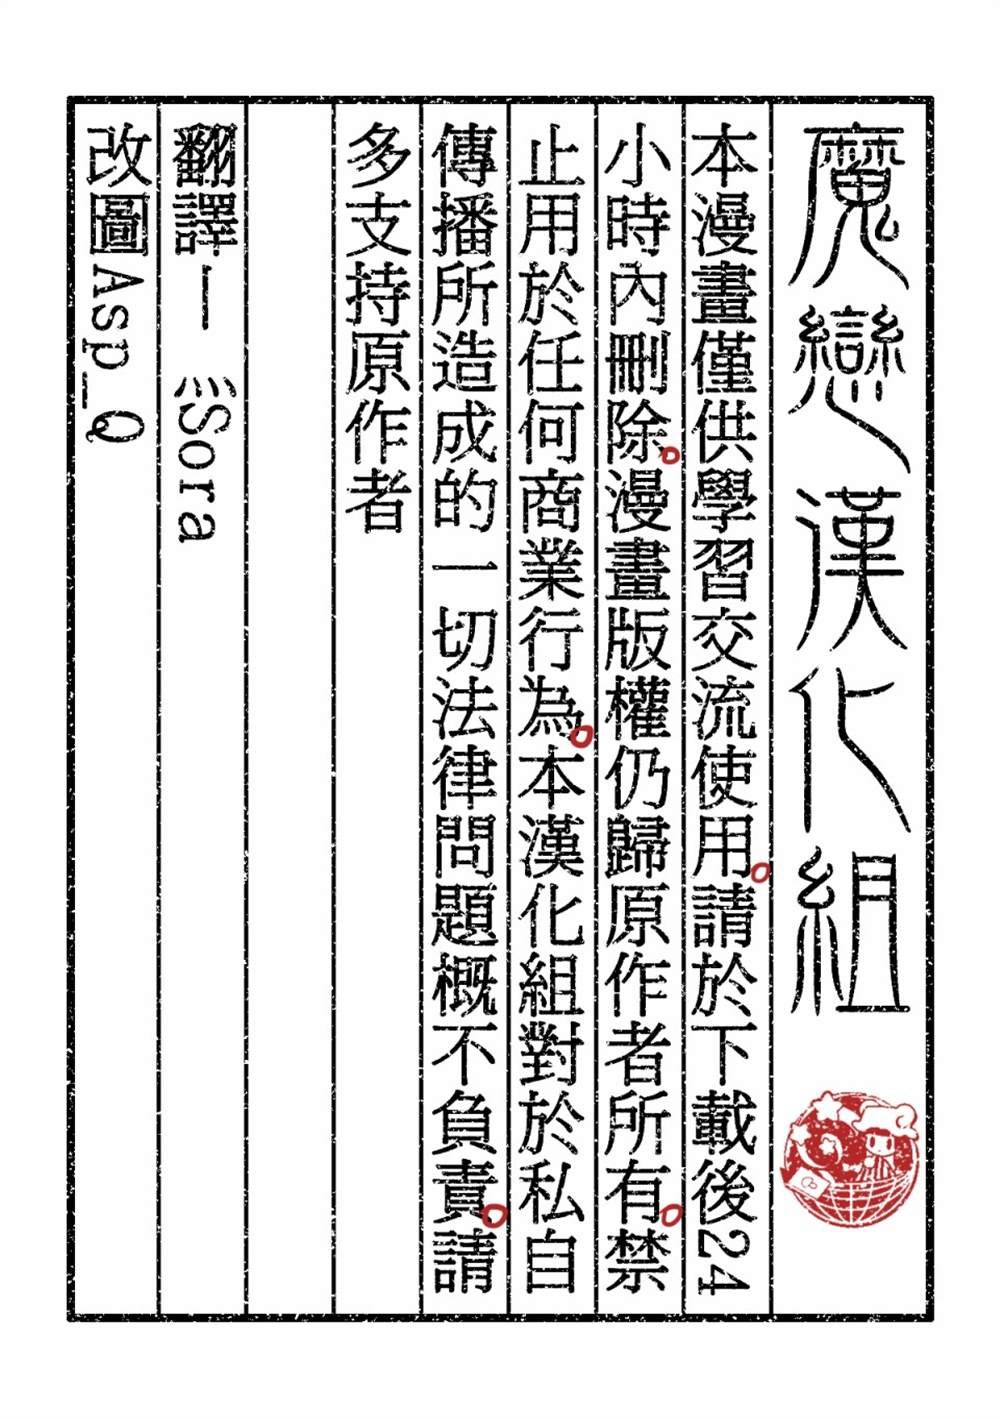 魔戀漢化組
本漫畫僅供學習交流使用。請於下載後24
小時內刪除。漫畫版權仍歸原作者所有。禁
止用於任何商業行為。本漢化組對於私自
傳播所造成的一切法律問題概不負責。請
多支持原作者
翻譯— ミSora
改圖Asp_Q